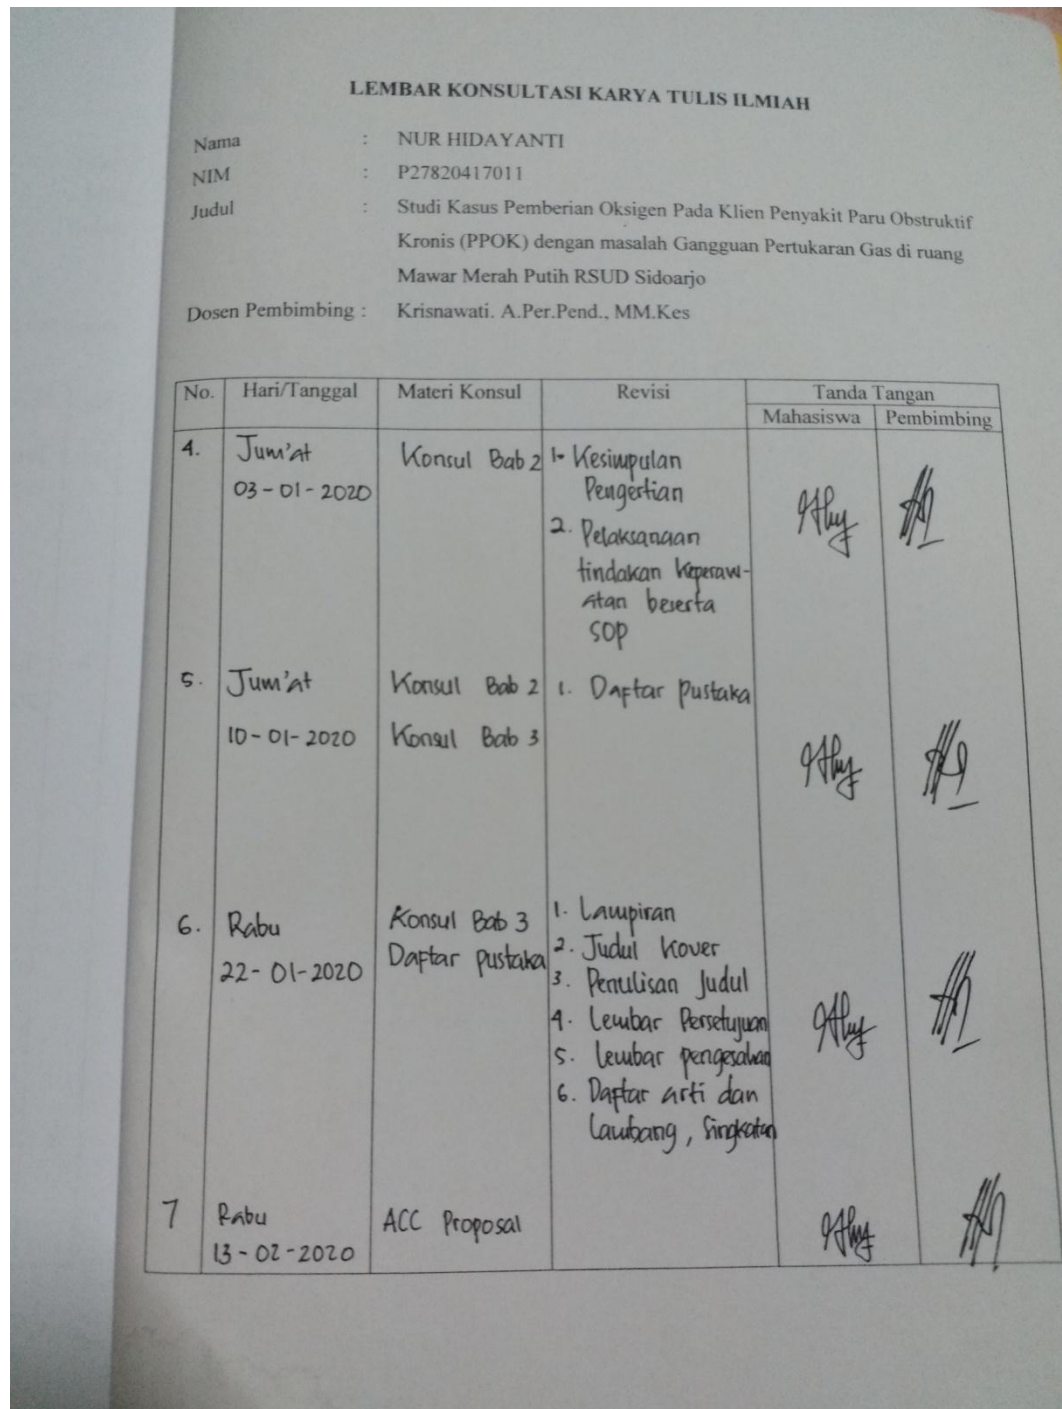 LEMBAR KONSULTASI KARYA TULIS ILMIAH
Nama : NUR HIDAYANTI
NIM : P27820417011
Judul : Studi Kasus Pemberian Oksigen Pada Klien Penyakit Paru Obstruktif
Kronis (PPOK) dengan masalah Gangguan Pertukaran Gas di ruang
Mawar Merah Putih RSUD Sidoarjo
Dosen Pembimbing : Krisnawati. A.Per.Pend., MM.Kes
No. Hari/Tanggal Materi Konsul Revisi Tanda Tangan
Mahasiswa Pembimbing
4. Jum'at Konsul Bab 2 1. Kesimpulan
03-01-2020 Pengertian
2. Pelaksanaan
tindakan Keperaw-
atan beserta
SOP
5. Jum'at Konsul Bab 2 1. Daftar Pustaka
10-01-2020 Konsul Bab 3
6. Rabu Konsul Bab 3 1. Lampiran
22-01-2020 Daftar pustaka 2. Judul Kover
3. Penulisan Judul
4. Lembar Persetujuan
5. Lembar pengesahan
6. Daftar arti dan
Lambang, Singkatan
7 Rabu ACC Proposal
13-02-2020